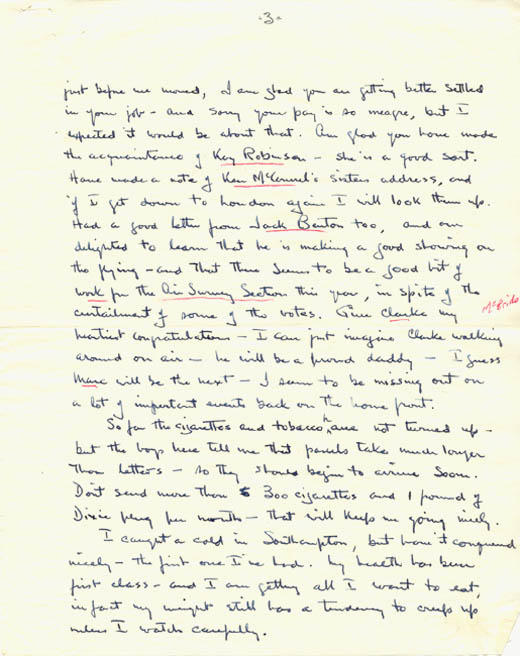 -3-
just before we moved, I am glad you are getting better settled
in your job - and sorry your pay is so meagre, but I
expected it would be about that. Am glad you have made
the acquaintance of Kay Robinson - she is a good sort.
Have made a note of Ken McKennel's sisters address, and
if I get down to London again I will look them up.
Had a good letter from Jack Benton too, and am
delighted to learn that he is making a good showing on
the flying - and that there seems to be a good bit of
work for the Air Survey Section this year, in spite of the
curtailment of some of the votes. Give Clarke my
McBride
heartiest congratulations - I can just imagine Clarke walking
around on air - he will be a proud daddy - I guess
Marc will be the next - I seem to be missing out on
a lot of important events back on the home front.
So far the cigarettes and tobacco have not turned up -
but the boys here tell me that parcels take much longer
than letters - so they should begin to arrive soon.
Don't send more than 300 cigarettes and 1 pound of
Dixie plug per month - that will keep me going nicely.
I caught a cold in Southampton, but have it conquered
nicely - the first one I've had. My health has been
first class - and I am getting all I want to eat,
in fact my weight still has a tendency to creep up
unless I watch carefully.